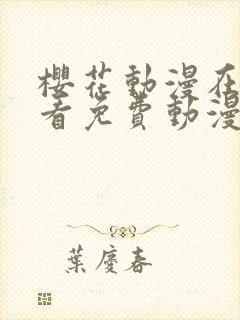 櫻花動漫在
看免費動漫
葉慶春